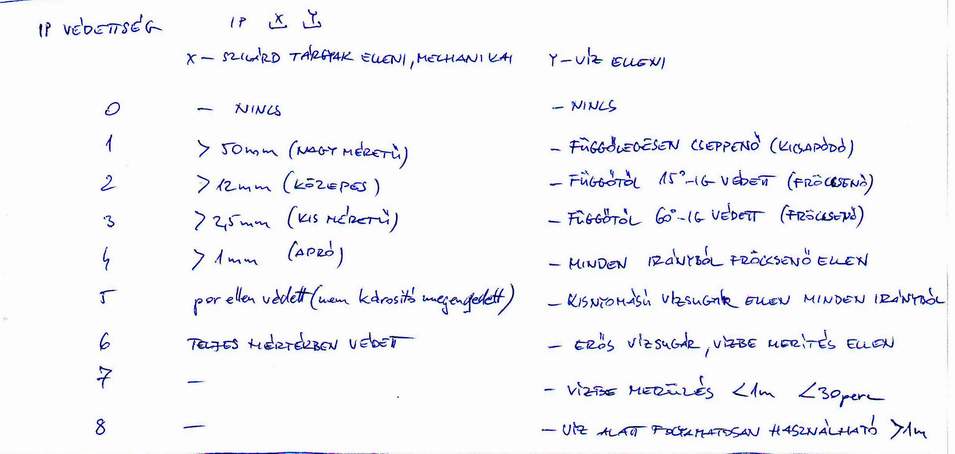 IP VÉDETTSÉG IP X Y
X – SZILÁRD TÁRGYAK ELLENI, MECHANIKAI Y – VÍZ ELLENI
0 – NINCS – NINCS
1 > 50mm (NAGY MÉRETŰ) – FÜGGŐLEGESEN CSEPPENŐ (KICSAPÓDÓ)
2 > 12mm (KÖZEPES) – FÜGGŐTŐL 15°-IG VÉDETT (FRÖCCSENŐ)
3 > 2,5mm (KIS MÉRETŰ) – FÜGGŐTŐL 60°-IG VÉDETT (FRÖCCSENŐ)
4 > 1mm (APRÓ) – MINDEN IRÁNYBÓL FRÖCCSENŐ ELLEN
5 por ellen védett (nem károsító megengedett) – KISNYOMÁSÚ VÍZSUGÁR ELLEN MINDEN IRÁNYBÓL
6 TELJES MÉRTÉRBEN VÉDETT – ERŐS VÍZSUGÁR, VÍZBE MERÍTÉS ELLEN
7 – – VÍZBE MERÜLÉS <1m <30perc
8 – – VÍZ ALATT FOLYAMATOSAN HASZNÁLHATÓ >1m